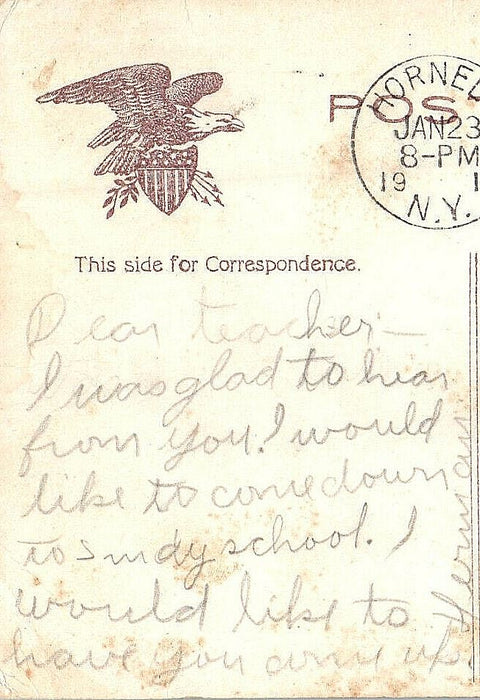 POS
HORNEL
JAN 23
8-PM
19 1
N.Y.
This side for Correspondence.
Dear teacher—
I was glad to hear
from you. I would
like to come down
to Sundy school. I
would like to
have you come up.
Herman